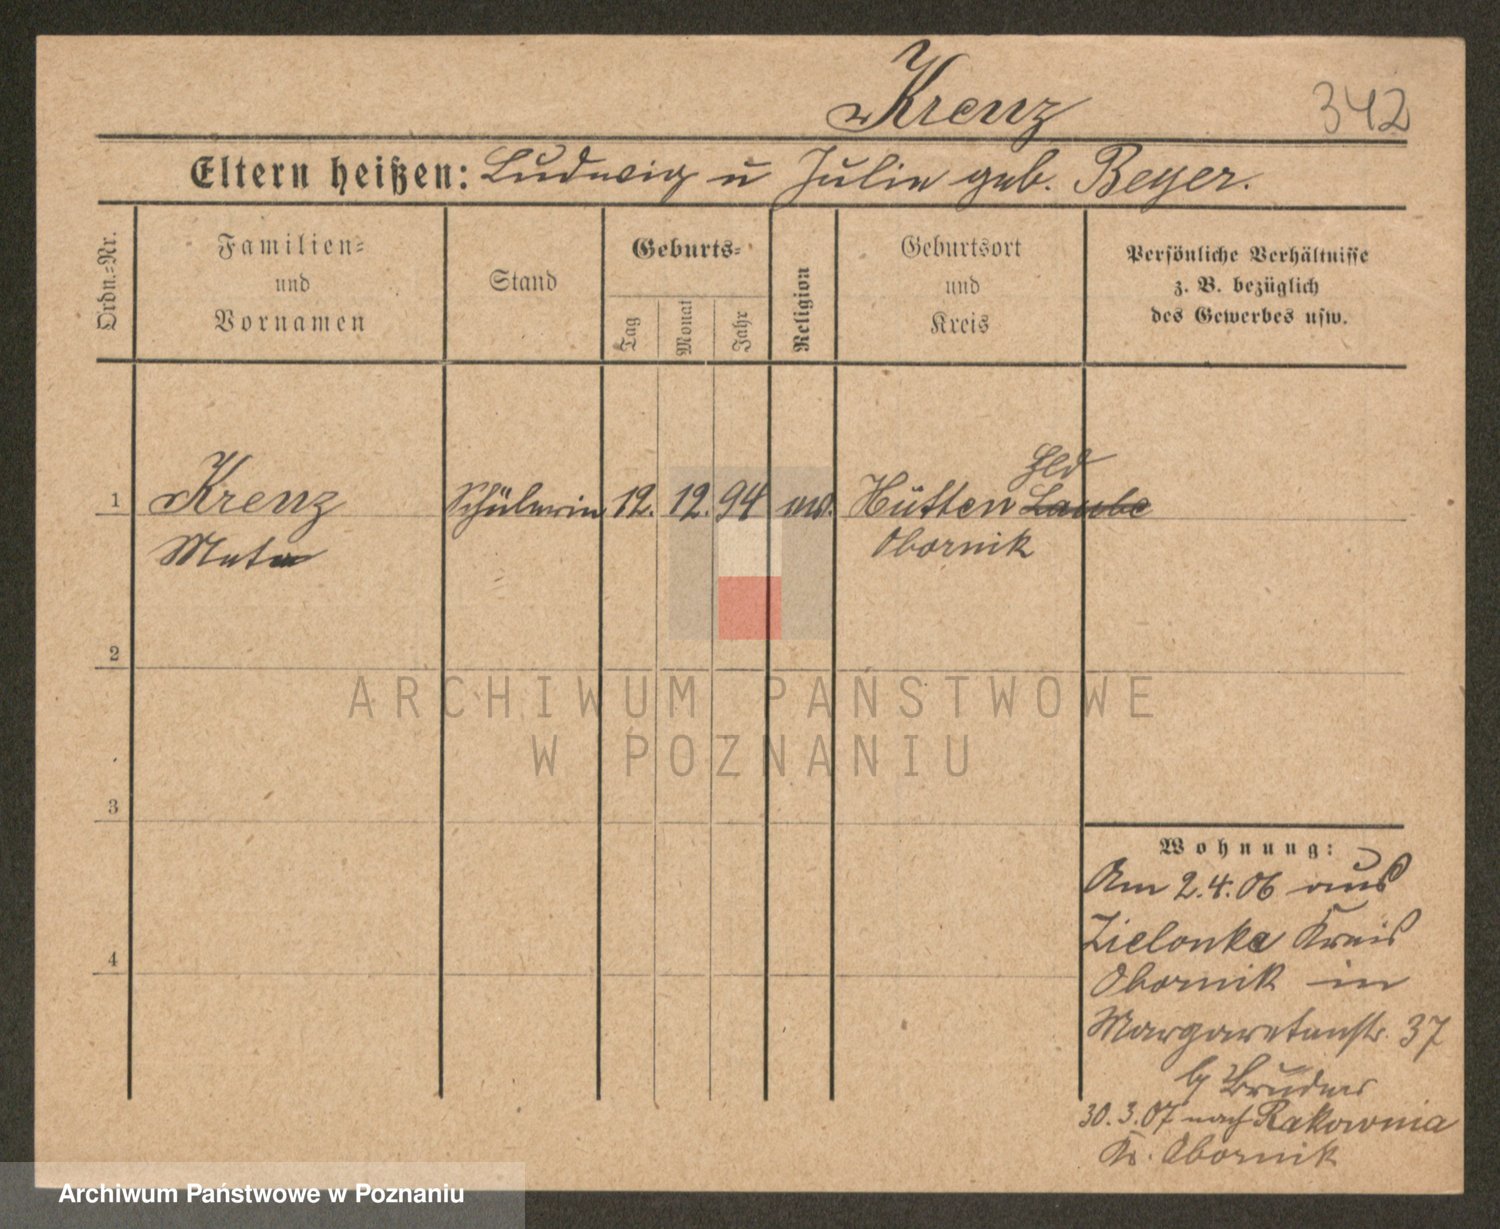 Krenz
342
Eltern heißen: Ludwig u Julie geb. Beyer.
Ordn.-Nr.
Familien-
und
Vornamen
Stand
Geburts-
Tag
Monat
Jahr
Religion
Geburtsort
und
Kreis
Persönliche Verhältnisse
z. B. bezüglich
des Gewerbes usw.
Hld
1 Krenz Schülerin 12. 12. 94 ev. Hütten Laube
Meta Obornik
2
ARCHIWUM PAŃSTWOWE
W POZNANIU
3
Wohnung:
Am 2.4.06 aus
Zielonke Kreis
4
Obornik in
Margaretenstr. 37
b/ Bruder
30.3.07 nach Rakownia
Kr. Obornik
Archiwum Państwowe w Poznaniu